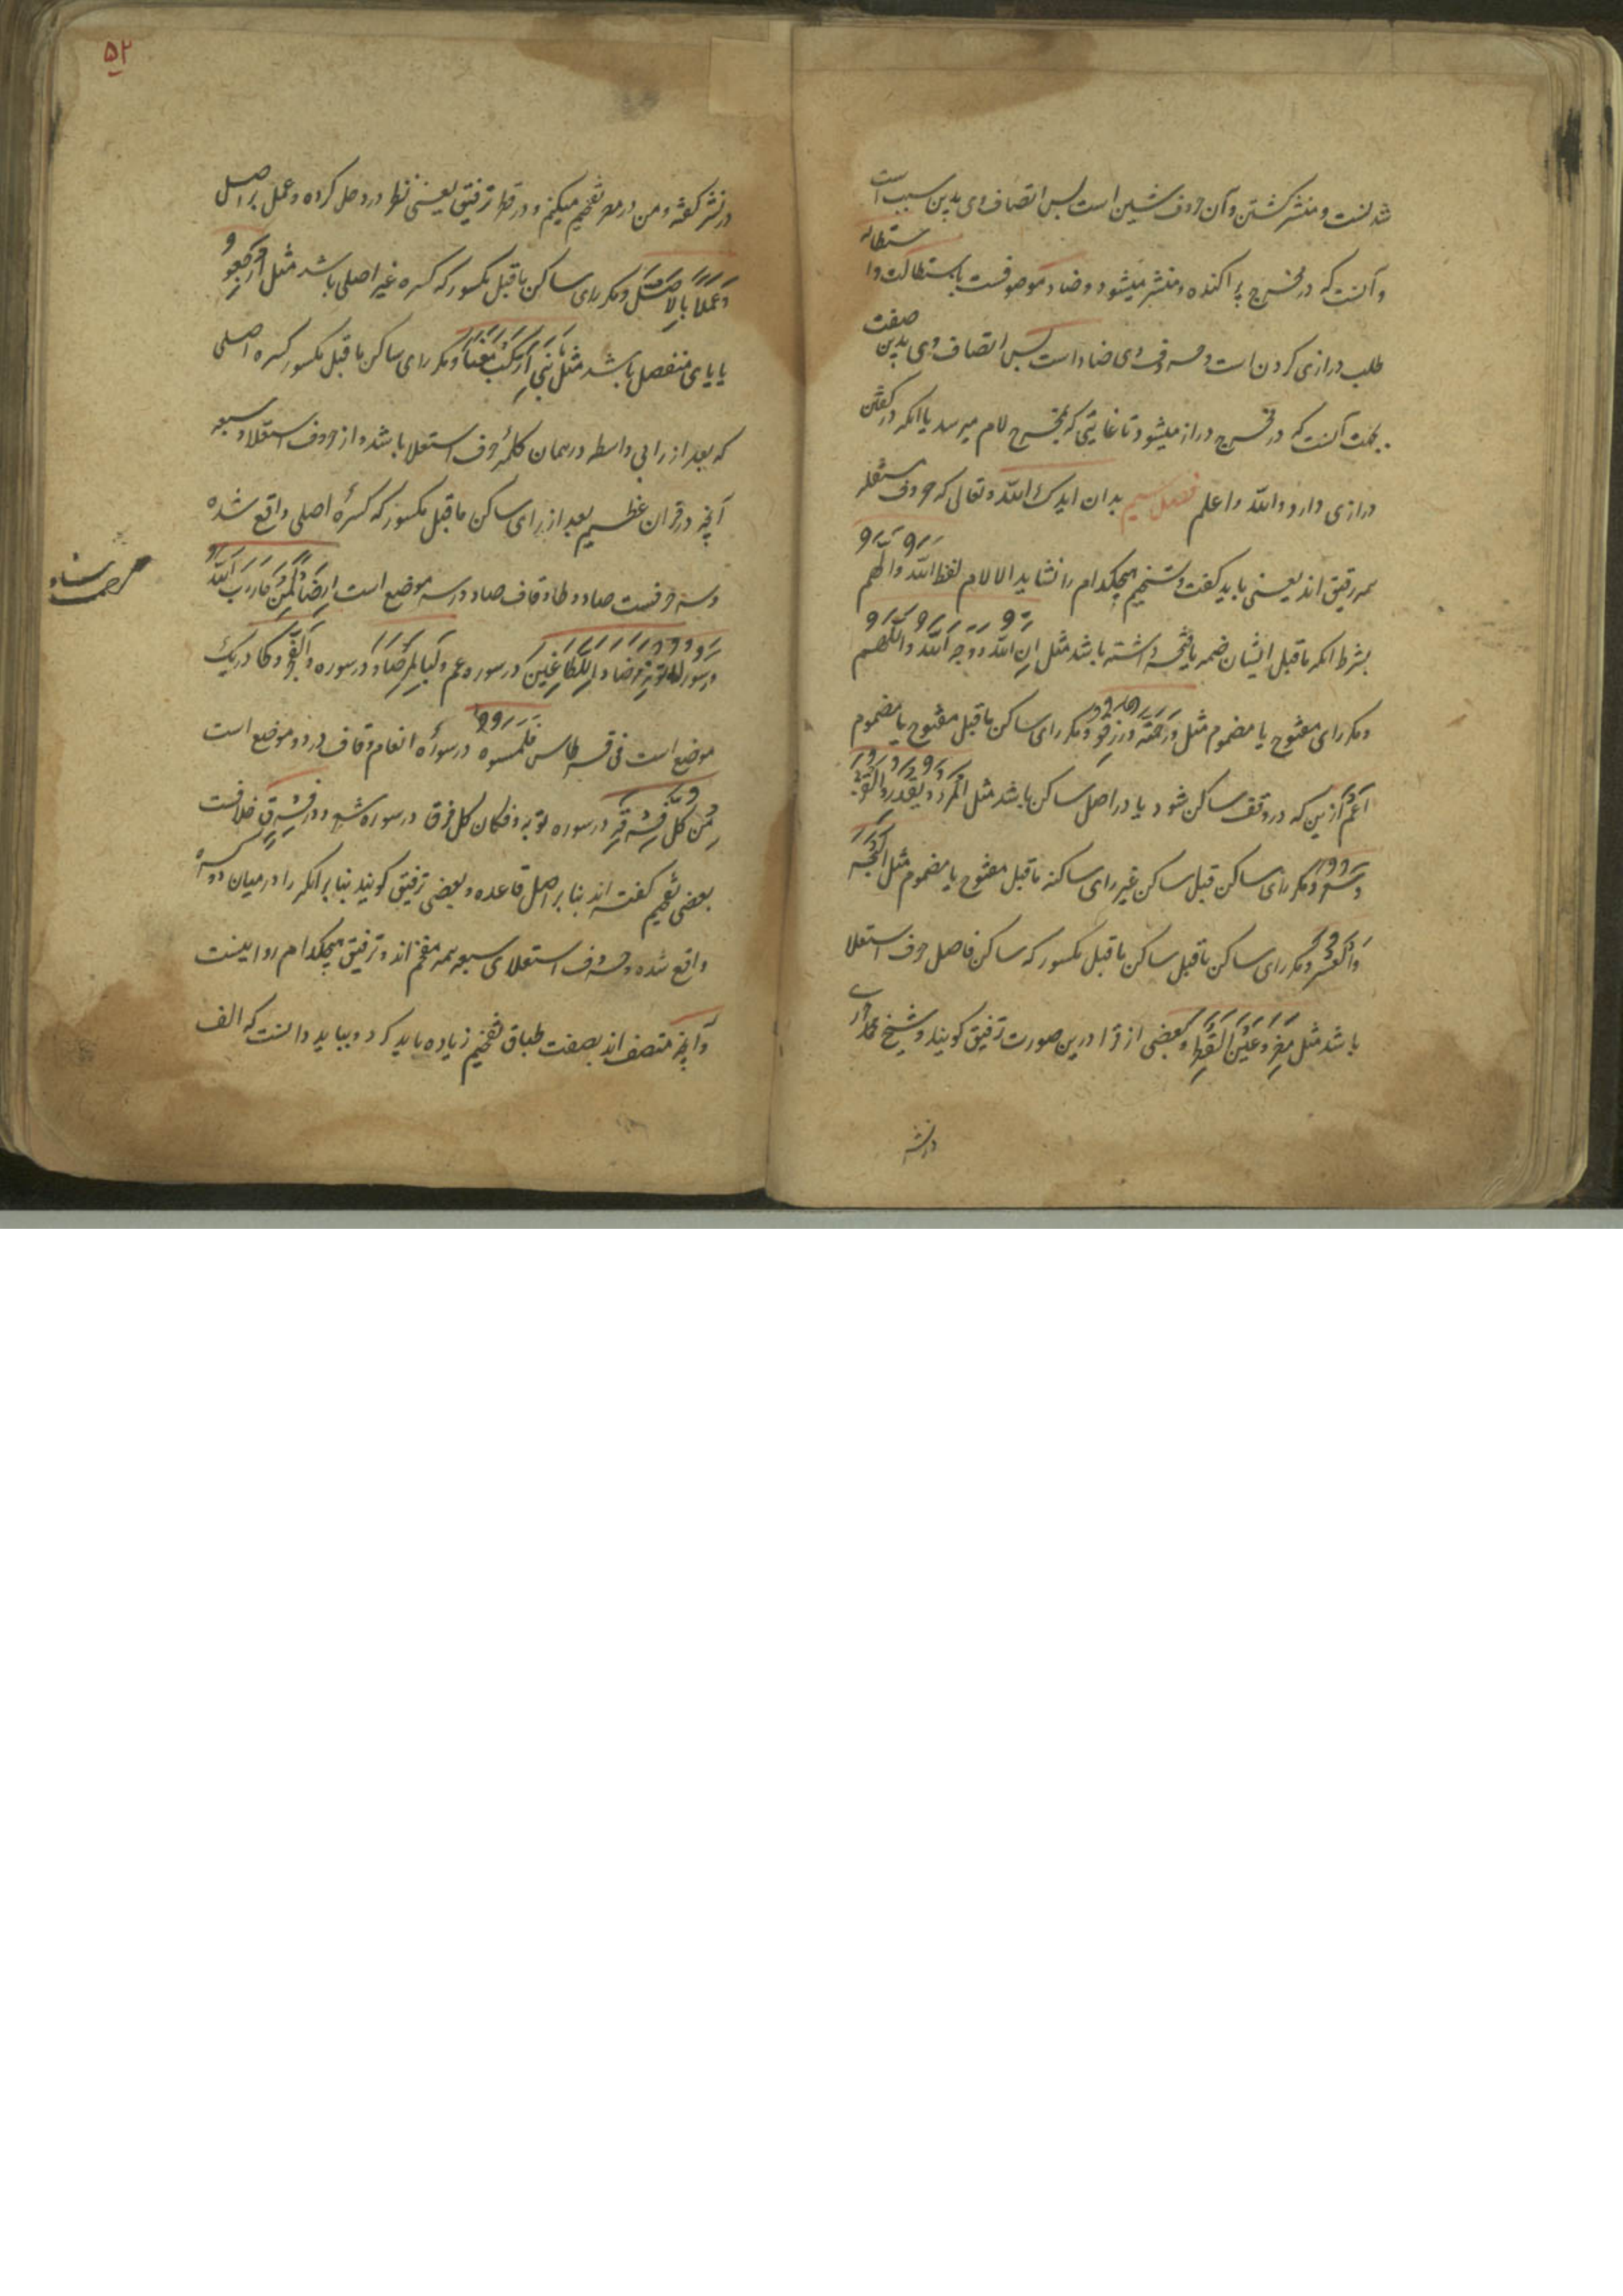 شدنست و منتشر کشتن و آن حروف شین است پس اتصاف وی بدین سبب است
و آنست که در مخرج پراکنده و منتشر میشود و ضاد موصوفست باستطالت و استطاله
طلب درازی کردن است و حروف وی ضاد است پس اتصاف وی بدین صفت
بجهت آنست که در مخرج دراز میشود تا غایتی که بمخرج لام میرسد یا انکه در کفتن
درازی دارد والله اعلم فصل سیم بدان ایدک الله تعالی که حروف مستفله
همه رقیق اند یعنی باید کفت و تفخیم هیچکدام را نشاید الا لام لفظ الله و اللهم
بشرط انکه ماقبل ایشان ضمه یا فتحه داشته باشد مثل ان الله و وجه الله و اللهم
و مکر رای مفتوح یا مضموم مثل ورحمة ورزقو و مکر رای ساکن ماقبل مفتوح یا مضموم
اعم ازین که در وقف ساکن شود یا در اصل ساکن باشد مثل
و مکر رای ساکن قبل ساکن غیر رای ساکنه ماقبل مفتوح یا مضموم مثل الفجر
والعسر و مکر رای ساکن ماقبل ساکن ماقبل مکسور که ساکن فاصل حرف استعلا
باشد مثل مصر و عین القطر و بعضی از قرا درین صورت ترقیق کویند و شیخ
در نشر
۵۲
در نشر کفته و من در مصر تفخیم میکنم و در قطر ترقیق یعنی نظر در وصل کرده و عمل براصل
وعملا بالاصل و مکر رای ساکن ماقبل مکسور که کسره غیر اصلی باشد مثل ارجعو
یا یای منفصل باشد مثل یبنی ارکب معنا و مکر رای ساکن ماقبل مکسور کسره اصلی
که بعد از را بی واسطه در همان کلمه حرف استعلا باشد و از حروف استعلا و سبعه
آنچه در قران عظیم بعد از رای ساکن ماقبل مکسور که کسرهٔ اصلی واقع شده
و سه حرفست صاد و طا و قاف صاد در سه موضع است ارصادا لمن حارب الله
در سوره توبه و مرصادا للطاغین در سوره عم و لبالمرصاد در سوره والفجر و طا در یک
موضع است فی قرطاس فلمسوه در سورهٔ انعام و قاف در دو موضع است
من کل فرقة در سوره توبه و فکان کل فرق در سوره شعرا و در فرق خلافست
بعضی تفخیم کفته اند بنا بر اصل قاعده و بعضی ترقیق کویند بنا بر انکه را در میان دو کسره
واقع شده و حروف استعلای سبعه همه مفخم اند و ترقیق هیچکدام روا نیست
و آنچه متصف اند بصفت طباق تفخیم زیاده باید کرد و بباید دانست که الف